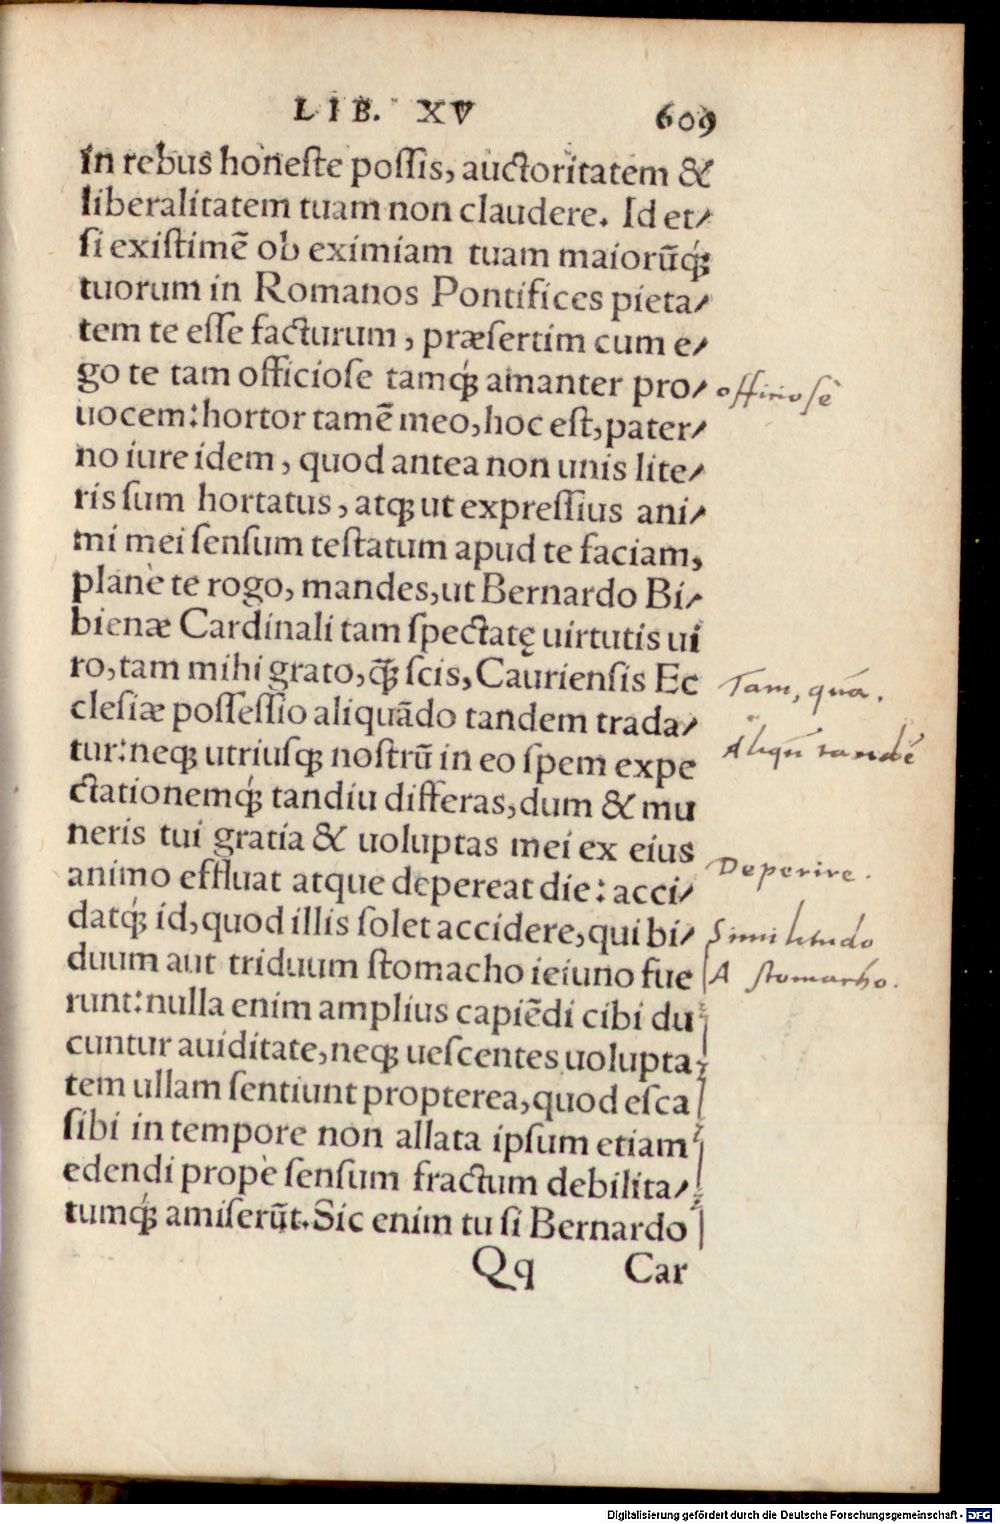 LIB. XV 609
in rebus honeste possis, auctoritatem &
liberalitatem tuam non claudere. Id et/
si existimē ob eximiam tuam maiorūq́;
tuorum in Romanos Pontifices pieta/
tem te esse facturum, præsertim cum e/
go te tam officiose tamq́; amanter pro/ officiosè
uocem: hortor tamē meo, hoc est, pater/
no iure idem, quod antea non unis lite/
ris sum hortatus, atq; ut expressius ani/
mi mei sensum testatum apud te faciam,
planè te rogo, mandes, ut Bernardo Bi/
bienæ Cardinali tam spectatę uirtutis ui
ro, tam mihi grato, q̃; scis, Cauriensis Ec Tam, quā.
clesiæ possessio aliquādo tandem trada/
tur: neq; utriusq; nostrū in eo spem expe Aliqū tandē
ctationemq́; tandiu differas, dum & mu
neris tui gratia & uoluptas mei ex eius
animo effluat atque depereat die: acci/ Deperire.
datq́; id, quod illis solet accidere, qui bi/ Similitudo
duum aut triduum stomacho ieiuno fue A stomacho.
runt: nulla enim amplius capiēdi cibi du
cuntur auiditate, neq; uescentes uolupta
tem ullam sentiunt propterea, quod esca
sibi in tempore non allata ipsum etiam
edendi propè sensum fractum debilita/
tumq́; amiserūt. Sic enim tu si Bernardo
Qq Car
Digitalisierung gefördert durch die Deutsche Forschungsgemeinschaft - DFG